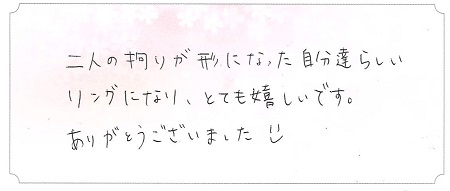 二人の拘りが形になった自分達らしい
リングになり、とても嬉しいです。
ありがとうございました